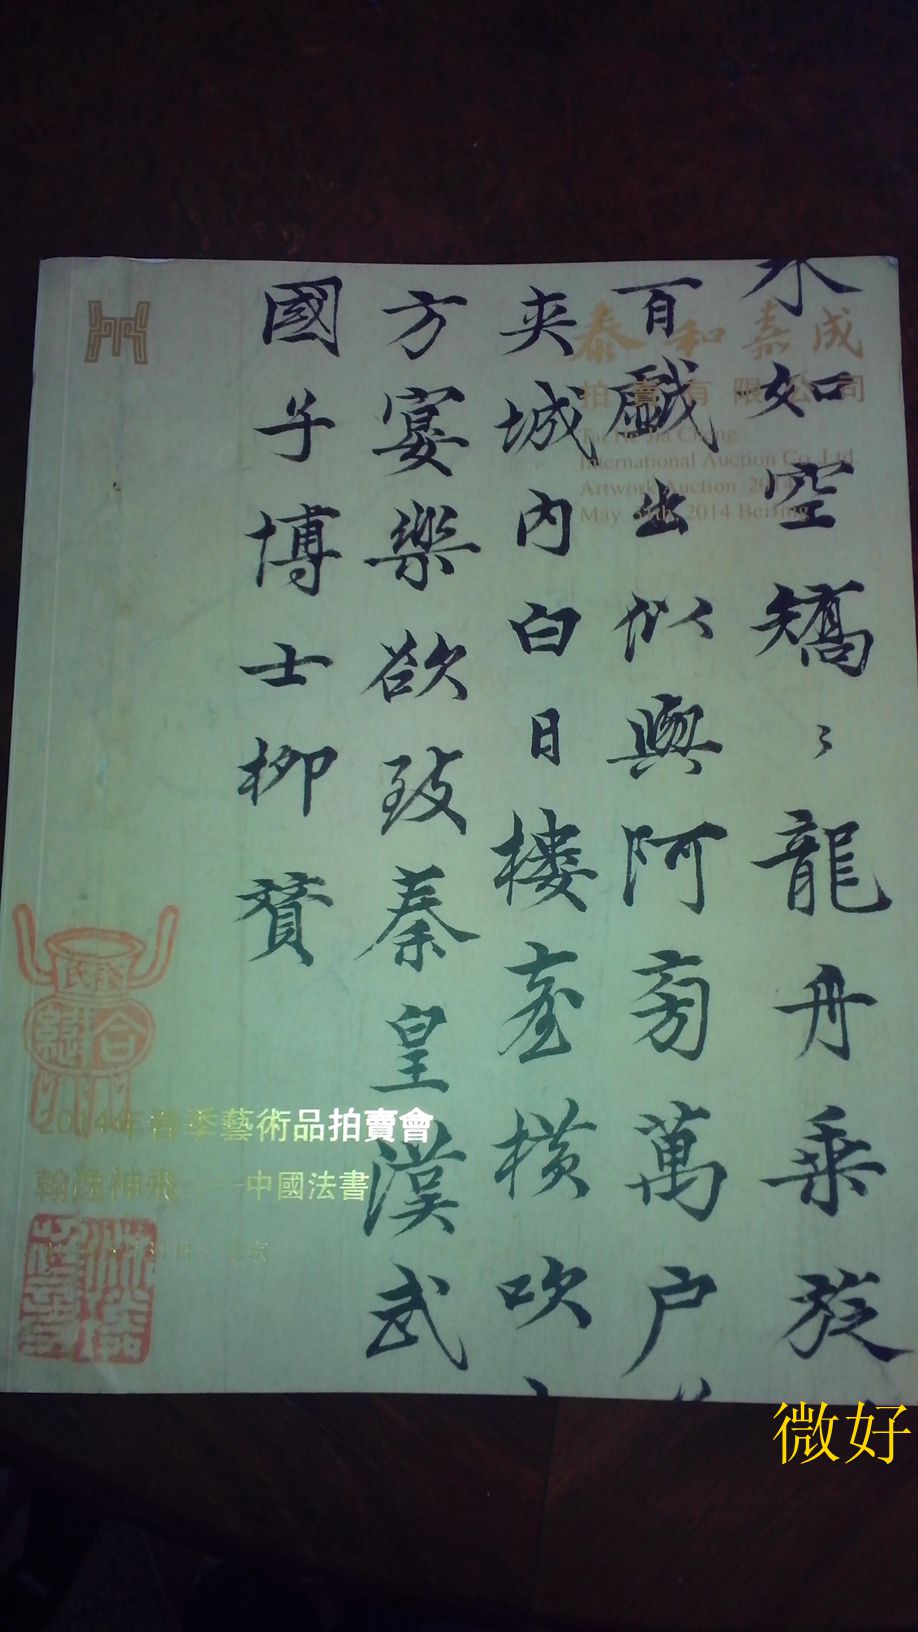 水如空矯〻龍舟乘旋
百戲出似與阿旁萬户
夾城内白日樓臺横吹
方宴樂欲致秦皇漢武
國子博士柳贇
泰和嘉成
拍賣有限公司
Tai He Jia Cheng
International Auction Co., Ltd.
Artwork Auction 2014
May. 2014 Beijing
2014年春季藝術品拍賣會
翰逸神飛——中國法書
北京
微好